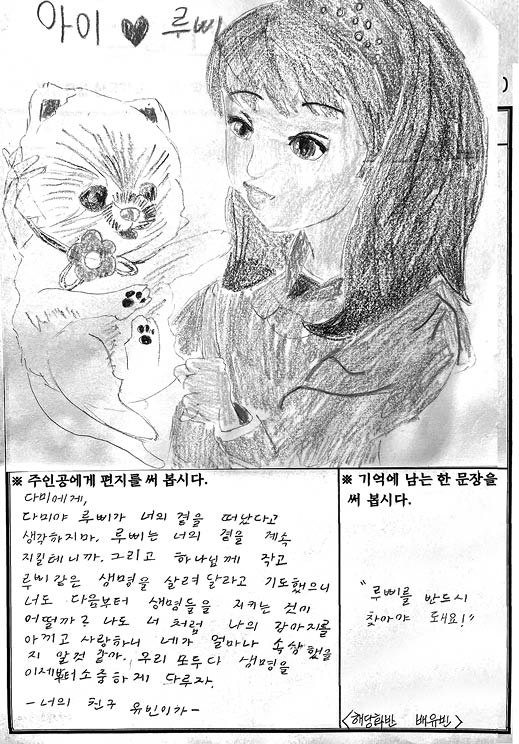 아이 ♥ 루삐
)
※ 주인공에게 편지를 써 봅시다.
다미에게,
다미야 루삐가 너의 곁을 떠났다고
생각하지마. 루삐는 너의 곁을 계속
지킬테니까. 그리고 하나님께 작고
루삐같은 생명을 살려달라고 기도했으니
너도 다음부터 생명들을 지키는 것이
어떨까? 나도 너처럼 나의 강아지를
아끼고 사랑하니 네가 얼마나 속상했을
지 알것 같아. 우리 모두다 생명을
이제부터소중하게 다루자.
-너의 친구 유빈이가-
※ 기억에 남는 한 문장을
써 봅시다.
"루삐를 반드시
찾아야 돼요!"
<해당화반 배유빈>